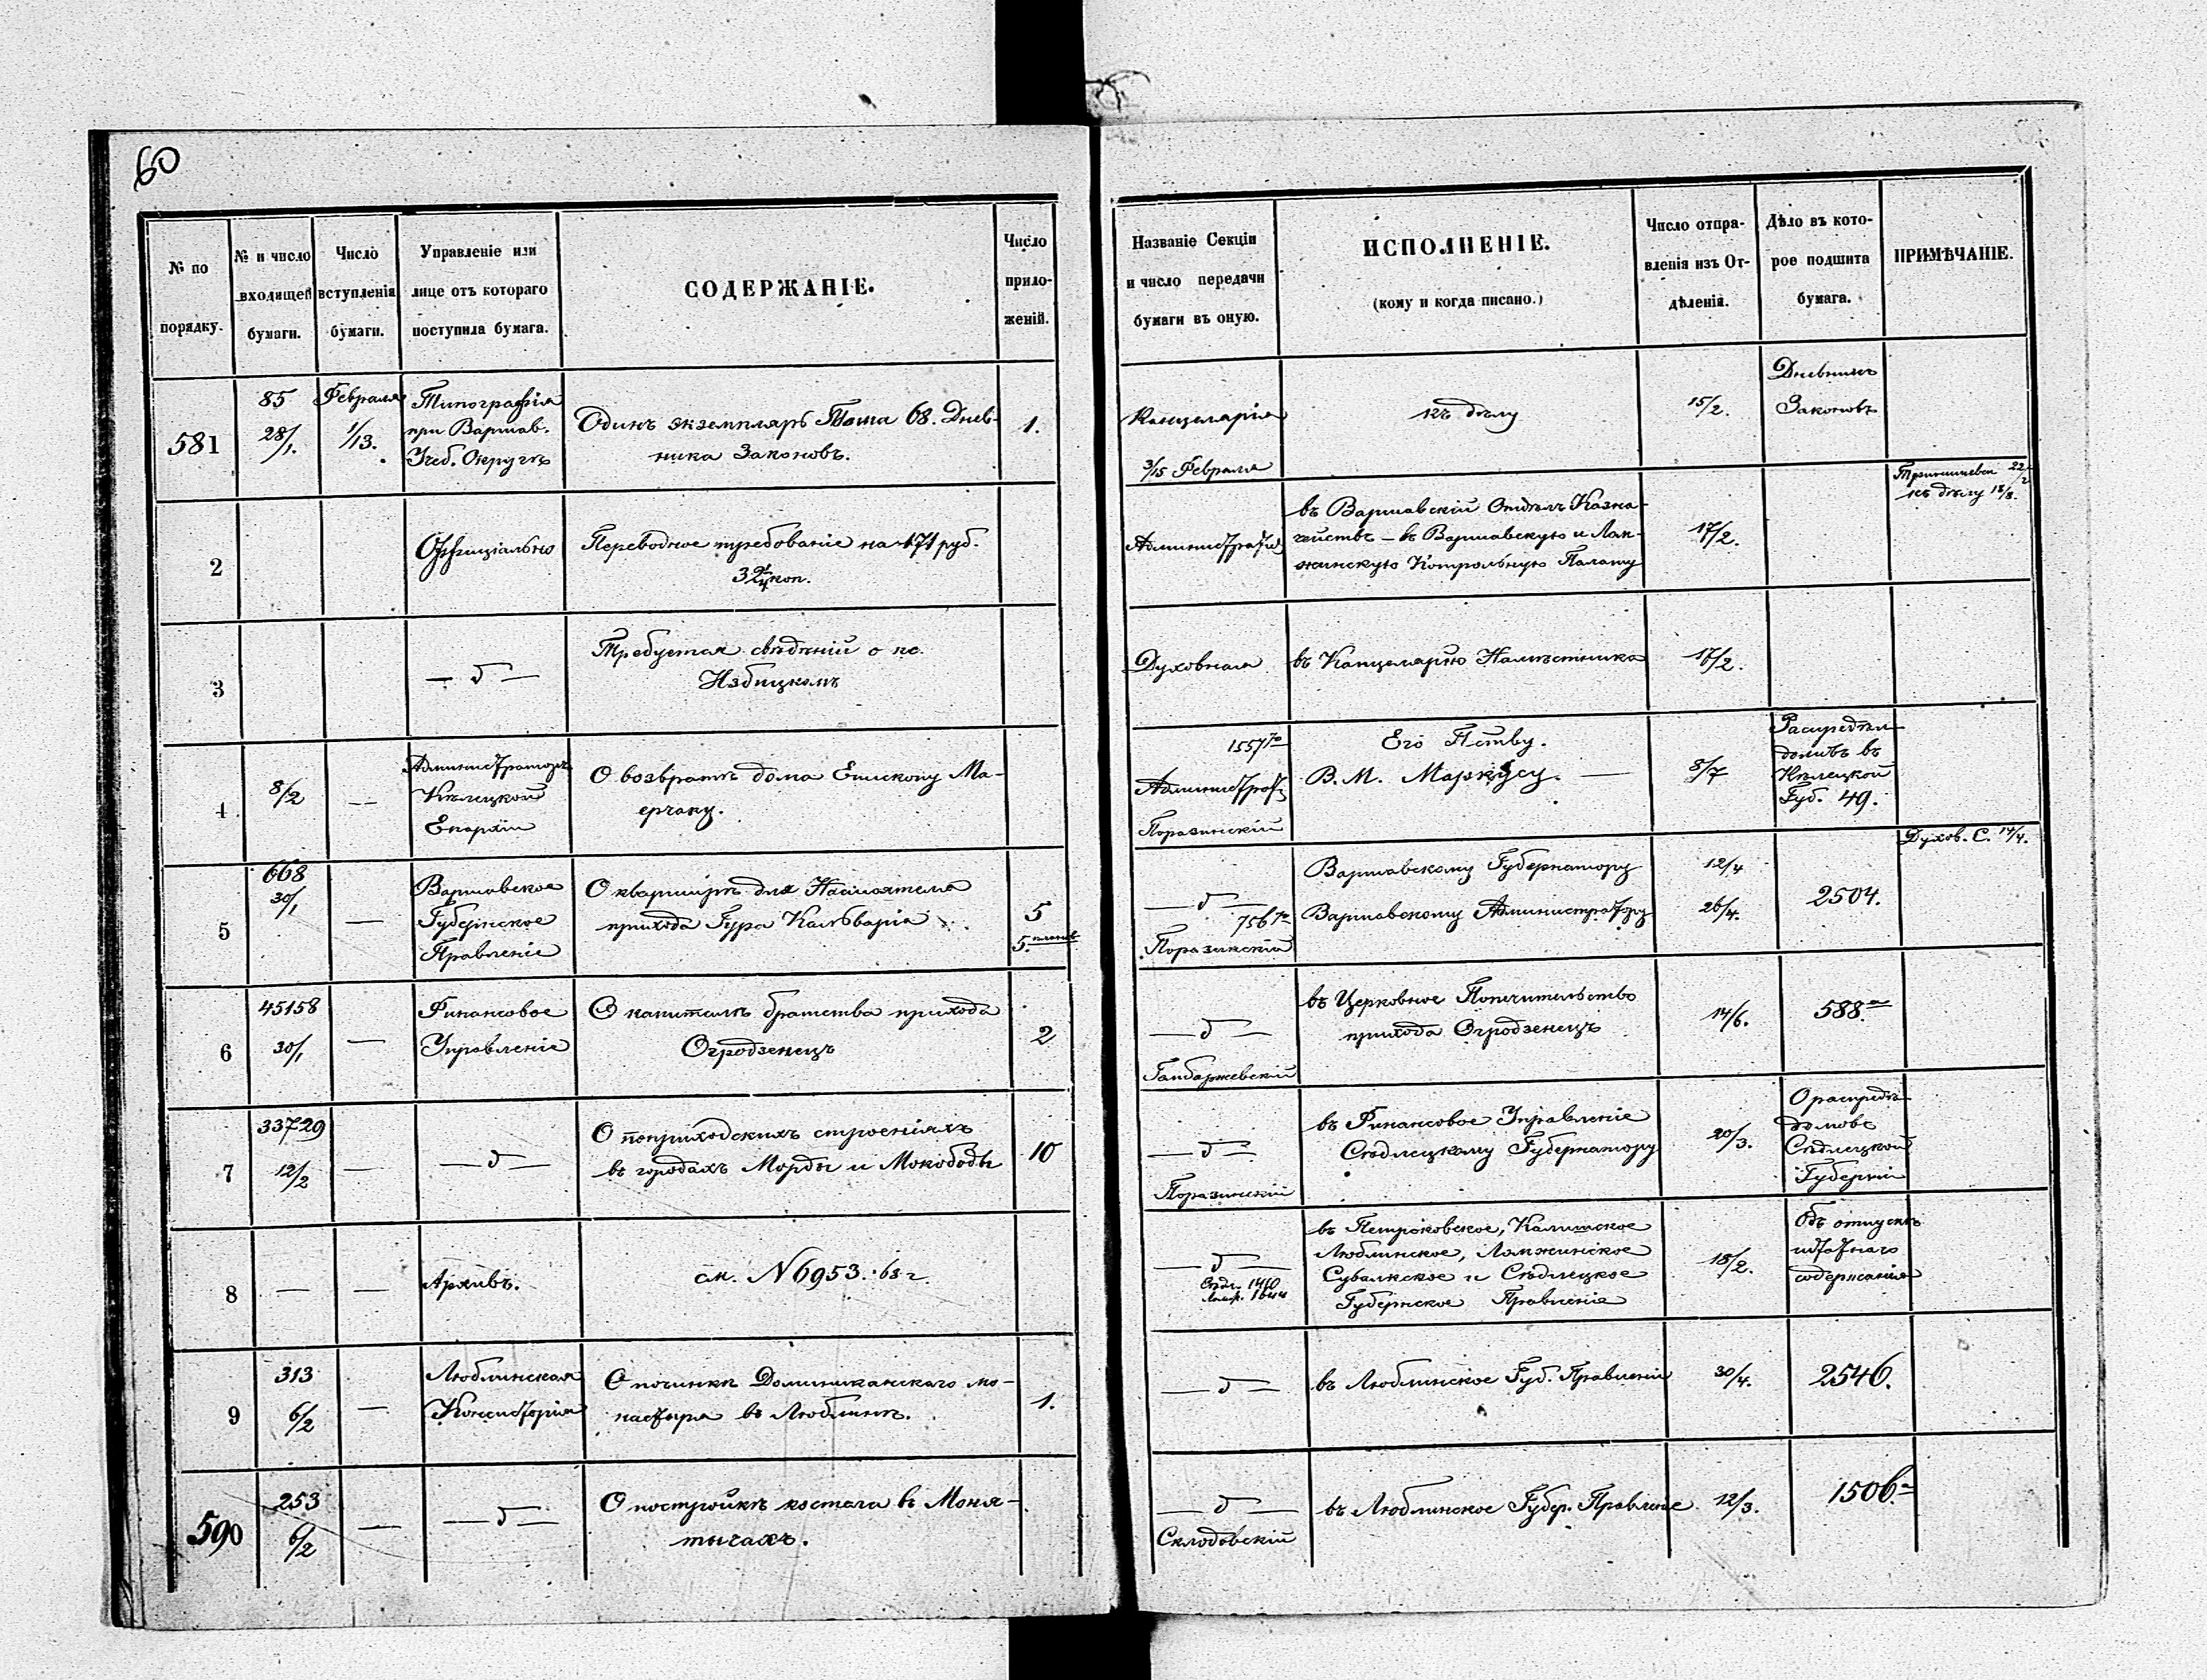 60
№ по порядку.
№ и число входящей бумаги.
Число вступленія бумаги.
Управленіе или лице отъ котораго поступила бумага.
СОДЕРЖАНІЕ.
Число приложеній.
Названіе Секціи и число передачи бумаги въ оную.
ИСПОЛНЕНІЕ.
(кому и когда писано.)
Число отправленія изъ Отдѣленія.
Дѣло въ которое подшита бумага.
ПРИМѢЧАНІЕ.
581
85
28/1.
Февраля
1/13.
Типографія
при Варшав.
Учеб. Округѣ
Одинъ экземпляръ Тома 68. Днев-
ника Законовъ.
1.
Канцелярія
3/15 Февраля
къ дѣлу
15/2.
Дневникъ
Законовъ
2
Оффиціально
Переводное требованіе на 171 руб.
коп.
въ Варшавскій Отдѣлъ Казна-
чействъ — въ Варшавскую и Лом-
жинскую Контрольную Палату
17/2.
къ дѣлу
3
— д —
Требуется свѣдѣній о кс.
Избицкомъ
Духовная
въ Канцелярію Намѣстника
17/2.
4
8/2
—
Администраторъ
Кѣлецкой
Епархіи
О возвратѣ дома Епископу Ма-
ерчаку.
1557
Поразинскій
Его Пству.
В. М. Маркусу. —
8/7
домовъ въ
Кѣлецкой
Губ. 49.
5
668
30/1
—
Варшавское
Губернское
Правленіе
О квартирѣ для Настоятеля
прихода Гура Кальварія
5
5. планов
— д —
756
Поразинскій
Варшавскому Губернатору
Варшавскому Администратору
12/4
26/4.
2504.
Духов. С. 14/4.
6
45158
30/1
—
Финансовое
Управленіе
О капиталѣ братства прихода
Огродзенецъ
2
— д —
въ Церковное Попечительство
прихода Огродзенецъ
14/6.
588.
7
33729
12/2
—
— д —
О поприходскихъ строеніяхъ
въ городахъ Морды и Мокободы
10
— д —
Поразинскій
въ Финансовое Управленіе
Сѣдлецкому Губернатору
20/3.
О распредѣ
домовъ
Сѣдлецкой
Губерніи
8
—
—
Архивъ.
см. N 6953. 68 г.
— д —
Сѣдл. 1410
въ Петроковское, Калишское
Люблинское, Ломжинское
Сувалкское и Сѣдлецкое
Губернское Правленіе
18/2.
Объ отпускѣ
штатнаго
содержанія
9
313
6/2
—
Люблинская
Консисторія
О починкѣ Доминиканскаго мо-
настыря въ Люблинѣ.
1.
— д —
въ Люблинское Губ. Правленіе
30/4.
2546.
590
253
6/2
—
— д —
О постройкѣ костела въ Моня-
тычахъ.
— д —
Склодовскій
въ Люблинское Губер. Правленіе
12/3.
1506.